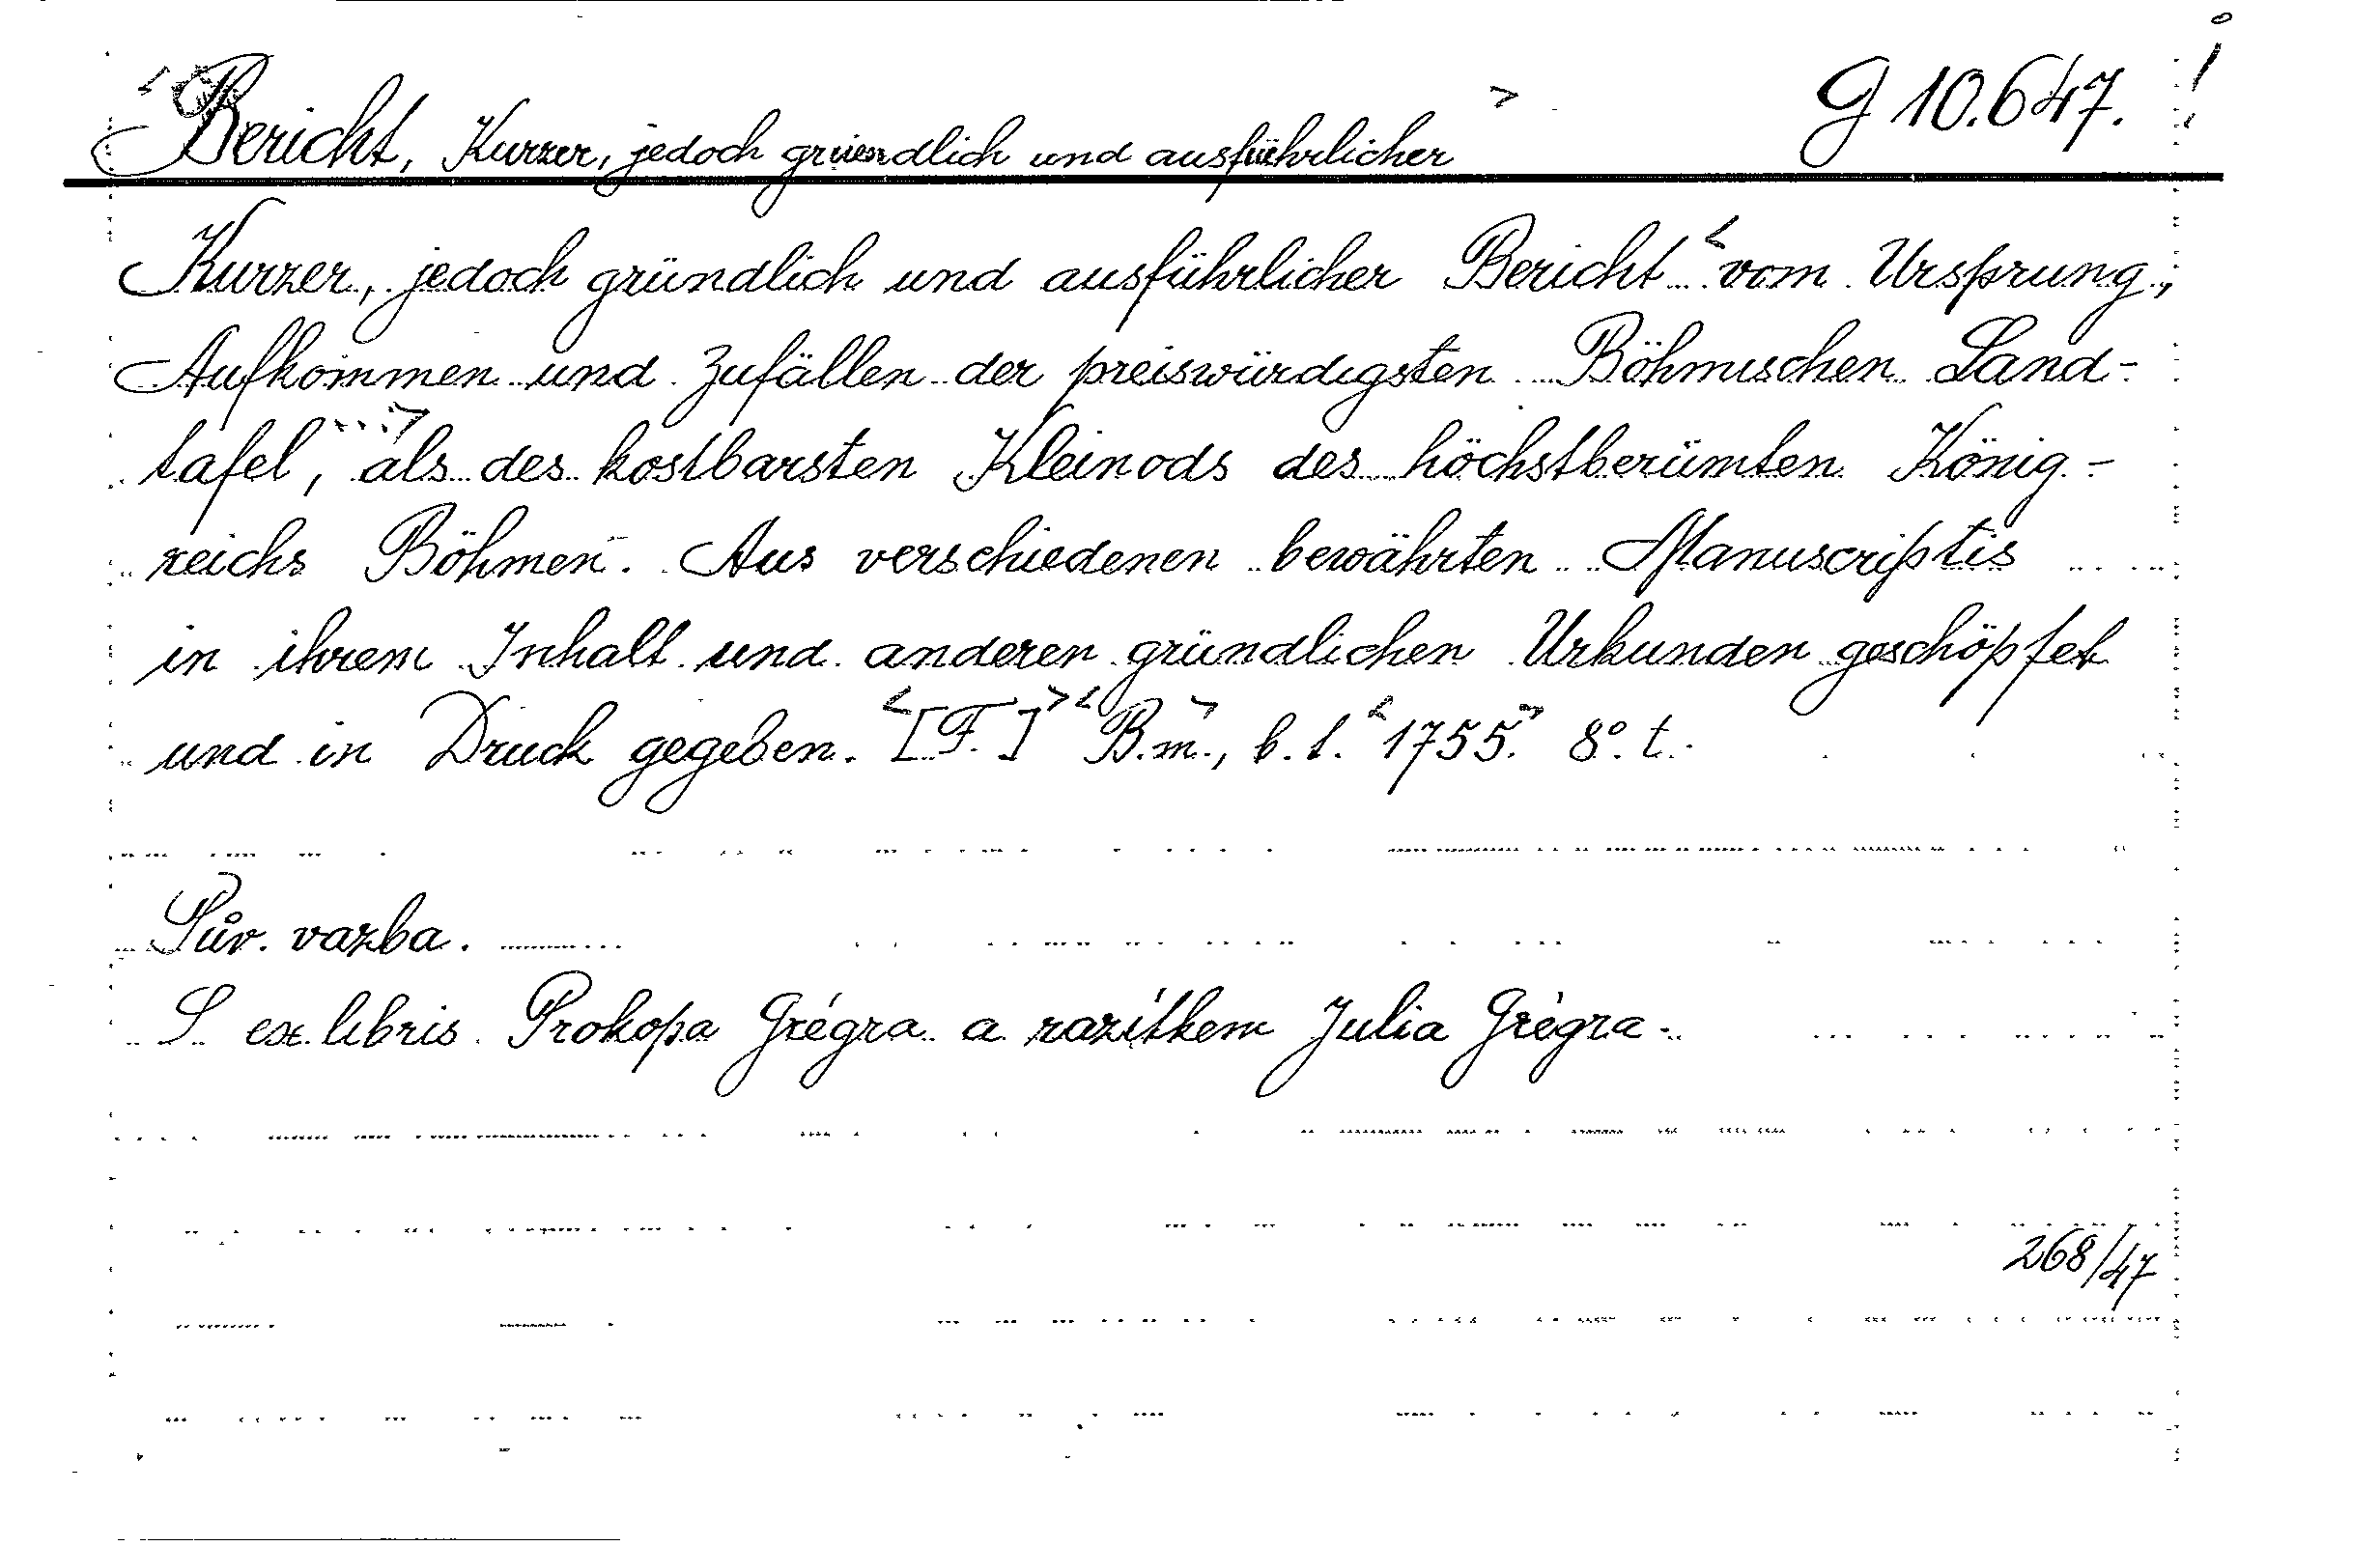 Bericht, Kurzer, jedoch gründlich und ausführlicher G 10.647.
Kurzer, jedoch gründlich und ausführlicher Bericht vom Ursprung,
Aufkommen und Zufällen der preiswürdigsten Böhmischen Land-
tafel, als des kostbarsten Kleinods des höchstberümten König-
reichs Böhmen. Aus verschiedenen bewährten Manuscriptis
in ihrem Inhalt und anderen gründlichen Urkunden geschöpfet
und in Druck gegeben. [F.] B.m., b.t. 1755. 8°. t.
Pův. vazba.
S ex libris Prokopa Grégra a razítkem Julia Grégra.
268/47